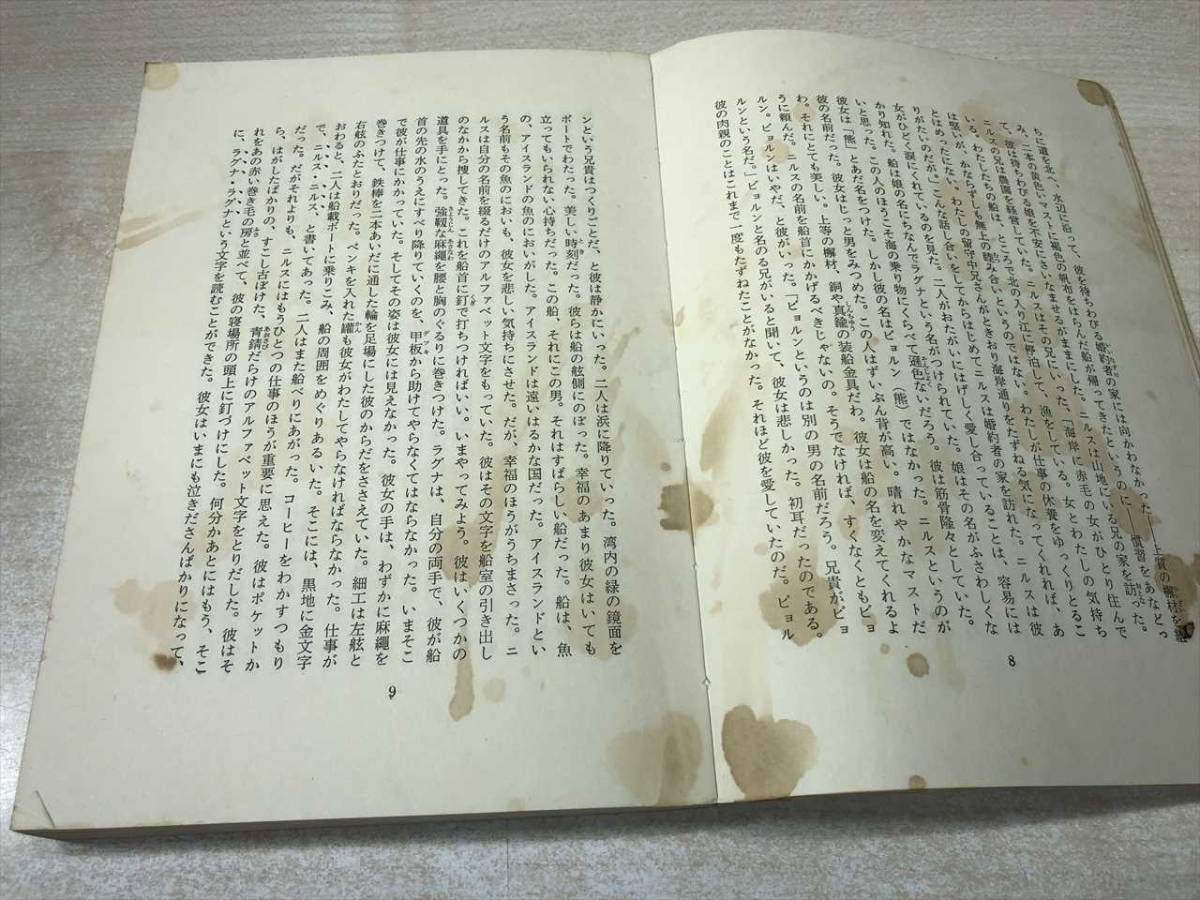 ちに道を北へ、水辺に沿って、彼を待ちわびる婚約者の家には向かわなかった――上質の檞材を
み、二本の黄色いマストに褐色の帆布をはらんだ船が帰ってきたというのに――慣習をあなどっ
て、彼は待ちわびる娘を不安にさいなませるがままにした。ニルスは山地にいる兄の家を訪った。
ニルスの兄は農園を経営していた。ニルスはその兄にいった、「海岸に赤毛の女がひとり住んで
いる。わたしたちの船は、ところで北の入り江に停泊して、漁をしている。女とわたしの気持ち
は堅いが、かならずしも無上の睦み合いというのではない。わたしが仕事の休養をゆっくりとるこ
とはめったにない。わたしの留守中兄さんがときおり海岸通りをたずねる気になってくれれば、あ
りがたいのだが。」こんな話し合いをしてからはじめてニルスは婚約者の家を訪れた。ニルスは彼
女がひどく涙にくれているのを見た。二人がおたがいにはげしく愛し合っていることは、容易には
かり知れた。船は娘の名にちなんでラグナという名がつけられていた。娘はその名がふさわしくな
いと思った。この人のほうこそ海の乗り物にくらべて遜色ないだろう。彼は筋骨隆々としていた。
彼女は「熊」とあだ名をつけた。しかし彼の名はビョルン（熊）ではなかった。ニルスというのが
彼の名前だった。彼女はじっと男をみつめた。この人はずいぶん背が高い。晴れやかなマストだ
わ。それにとても美しい。上等の檞材、銅や真鍮の装船金具だわ。彼女は船の名を変えてくれるよ
うに頼んだ。ニルスの名前を船首にかかげるべきじゃないの。そうでなければ、すくなくともビョ
ルン。ビョルンはいやだ、と彼がいった。「ビョルンというのは別の男の名前だろう。兄貴がビョ
ルンという名だ。」ビョルンと名のる兄がいると聞いて、彼女は悲しかった。初耳だったのである。
彼の肉親のことはこれまで一度もたずねたことがなかった。それほど彼を愛していたのだ。ビョル
8
ンという兄貴はつくりごとだ、と彼は静かにいった。二人は浜に降りていった。湾内の緑の鏡面を
ボートでわたった。美しい時刻だった。彼らは船の舷側にのぼった。幸福のあまり彼女はいても
立ってもいられない心持ちだった。この船、それにこの男。それはすばらしい船だった。船は、魚
の、アイスランドの魚のにおいがした。アイスランドは遠いはるかな国だった。アイスランドとい
う名前もその魚のにおいも、彼女を悲しい気持ちにさせた。だが、幸福のほうがうちまさった。ニ
ルスは自分の名前を綴るだけのアルファベット文字をもっていた。彼はその文字を船室の引き出し
のなかから捜してきた。これを船首に釘で打ちつければいい。いまやってみよう。彼はいくつかの
道具を手にとった。強靱な麻縄を腰と胸のぐるりに巻きつけた。ラグナは、自分の両手で、彼が船
首の先の水のうえにすべり降りていくのを、甲板から助けてやらなくてはならなかった。いまそこ
で彼が仕事にかかっていた。そしてその姿は彼女には見えなかった。彼女の手は、わずかに麻縄を
巻きつけて、鉄棒を二本あいだに通した輪を足場にした彼のからだをささえていた。細工は左舷と
右舷のふたとおりだった。ペンキを入れた罐も彼女がわたしてやらなければならなかった。仕事が
おわると、二人は船載ボートに乗りこみ、船の周囲をめぐりあるいた。そこには、黒地に金文字
で、ニルス・ニルス、と書いてあった。二人はまた船べりにあがった。コーヒーをわかすつもり
だった。だがそれよりも、ニルスにはもうひとつの仕事のほうが重要に思えた。彼はポケットか
ら、はがしたばかりの、すこし古ぼけた、青錆だらけのアルファベット文字をとりだした。彼はそ
れをあの赤い巻き毛の房と並べて、彼の寝場所の頭上に釘づけにした。何分かあとにはもう、そこ
に、ラグナ・ラグナという文字を読むことができた。彼女はいまにも泣きださんばかりになって、
9